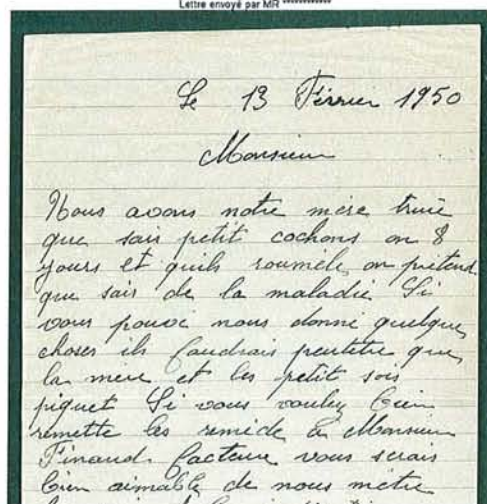 Lettre envoyé par MR ************
Le 13 Février 1950
Monsieur
Nous avons notre mère truie
que sais petit cochons on 8
jours et quils roumèle on prétend
que sais de la maladie Si
vous pouvoi nous donné quelque
choses ils faudrais peutêtre que
la mere et les petit sois
piquet Si vous voulez bien
remette les remède a Monsieur
Finaud facteur vous serais
bien aimable de nous métre